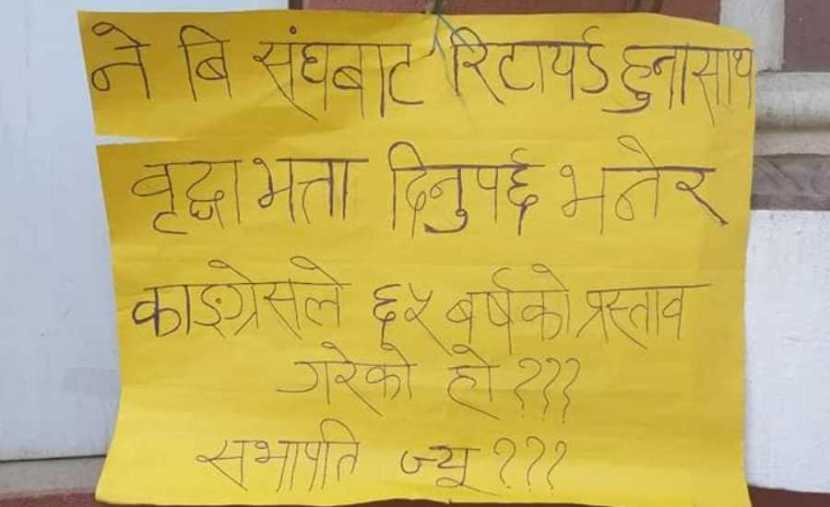 ने बि संघबाट रिटायर्ड हुनासाथ
वृद्धा भत्ता दिनुपर्छ भनेर
काङग्रेसले ६५ बर्षको प्रस्ताव
गरेको हो???
सभापति ज्यू???